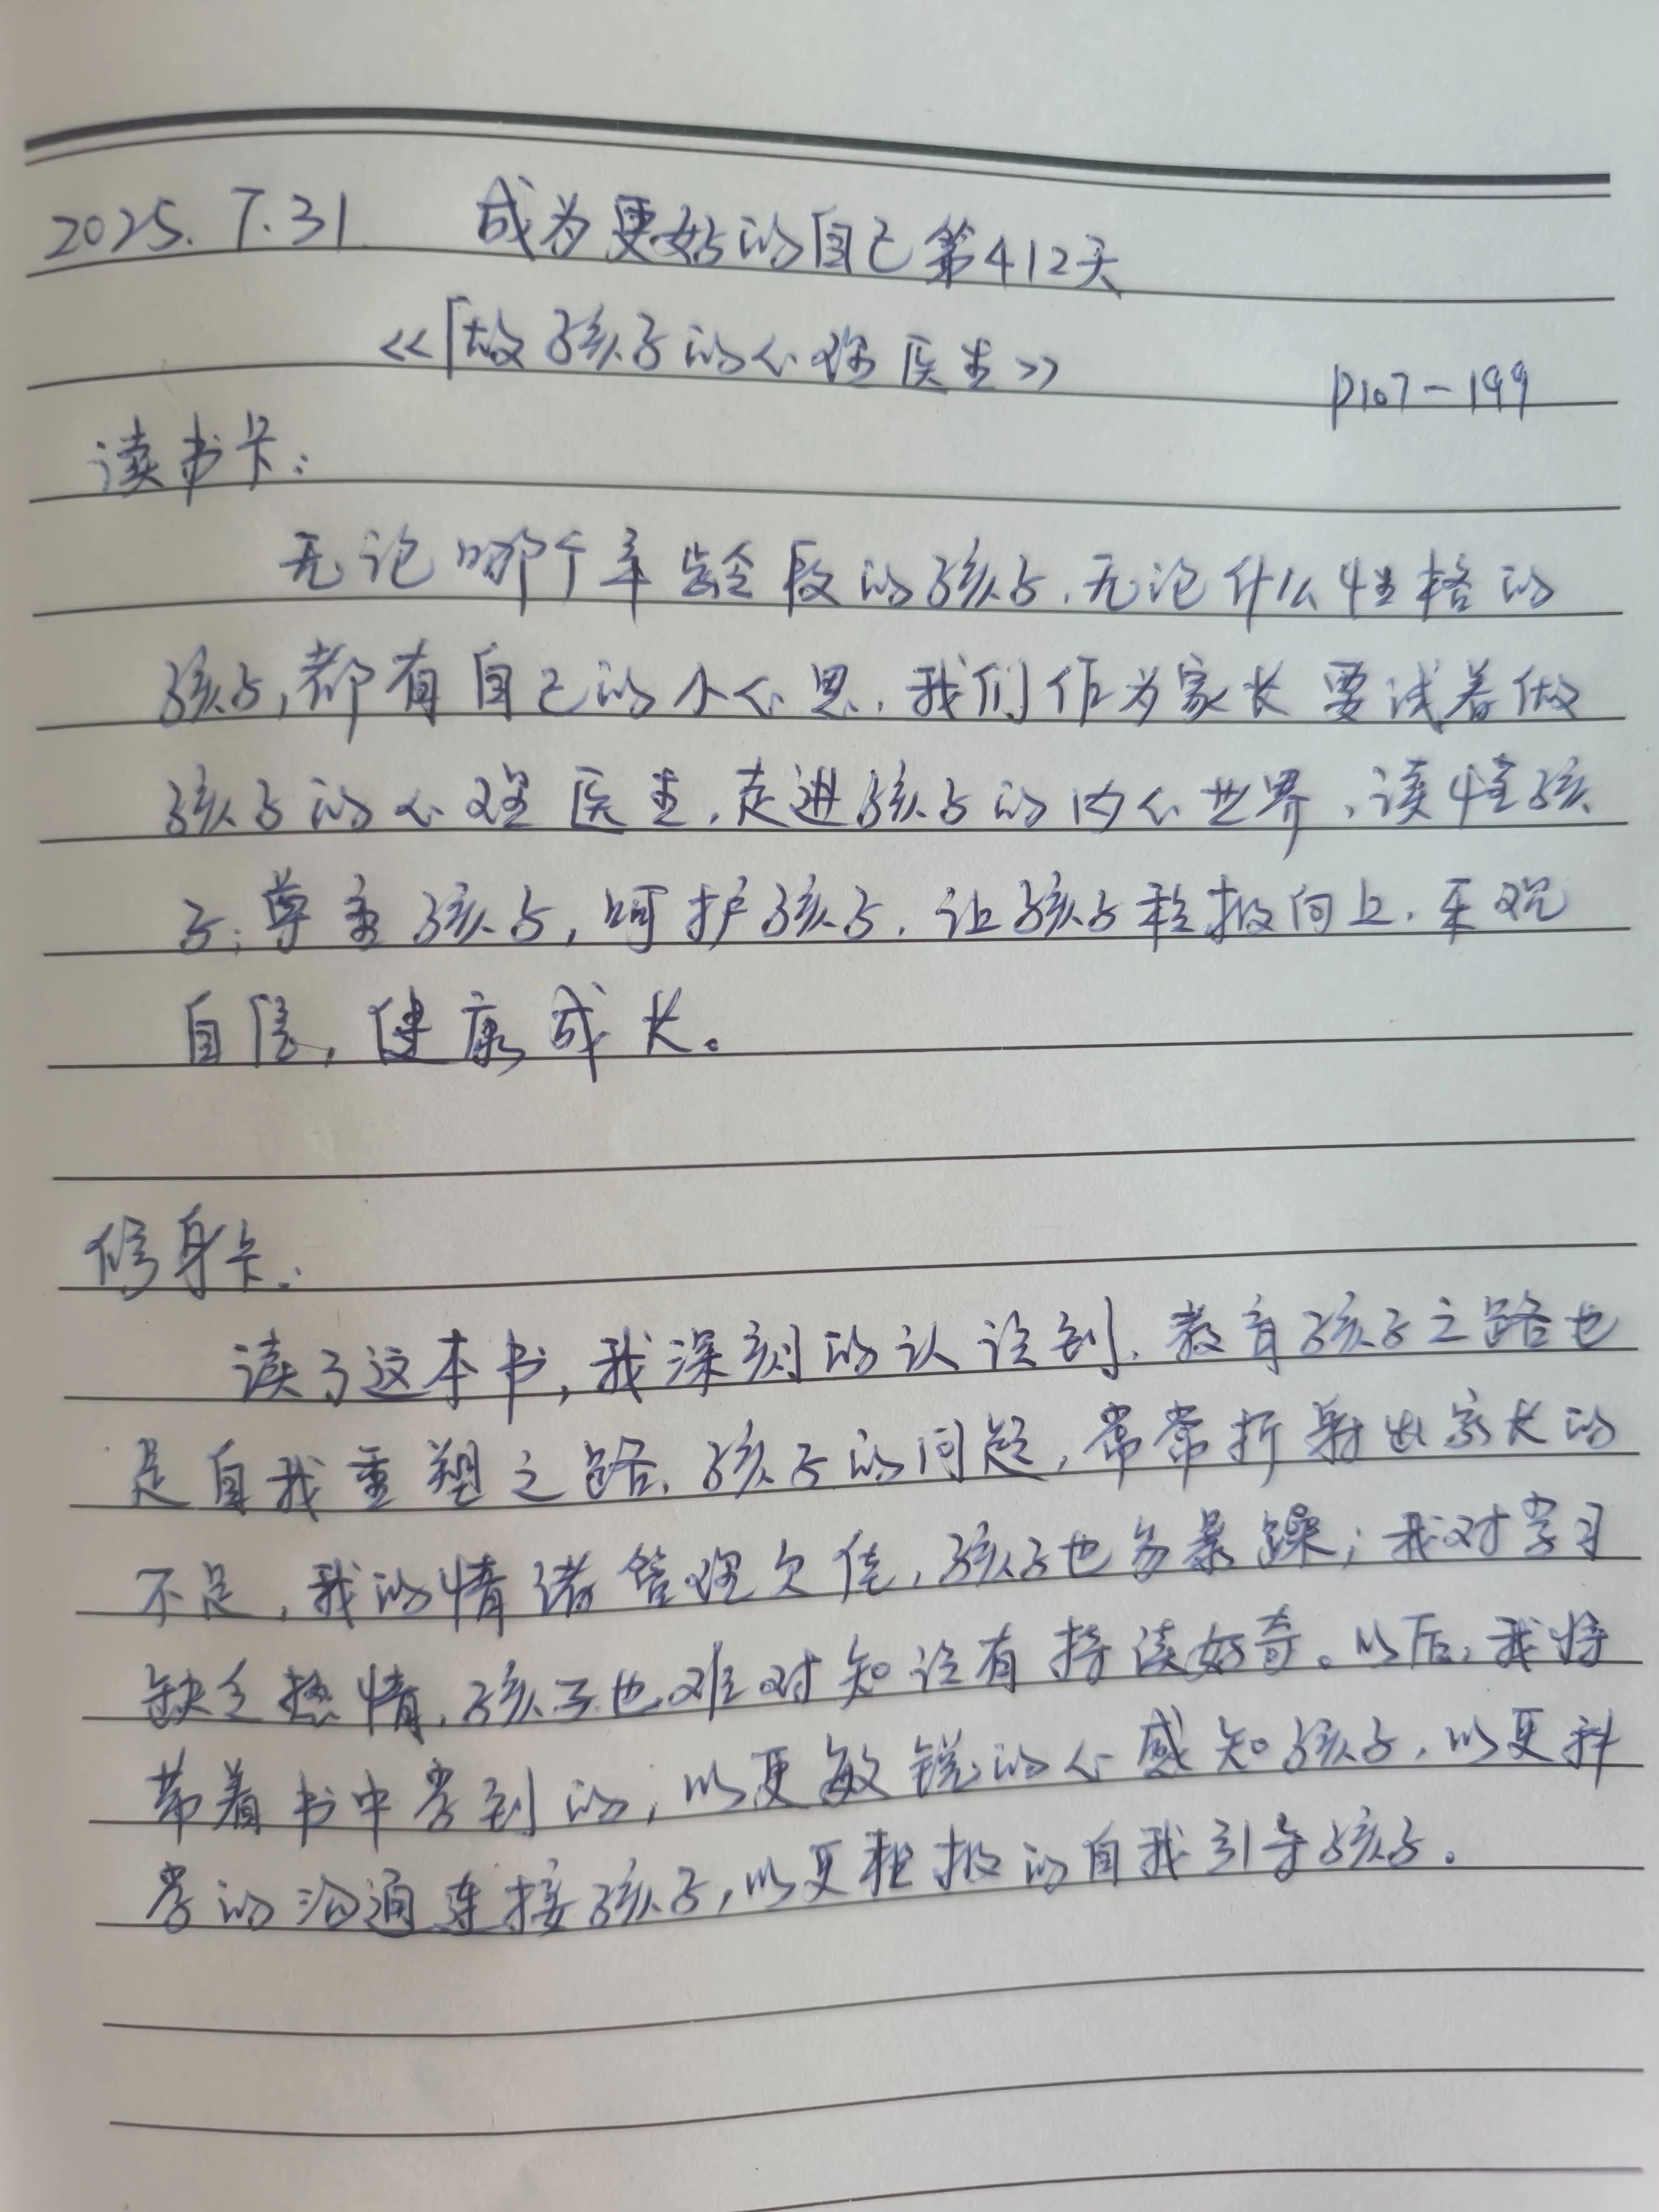 2025.7.31 成为更好的自己第412天
《做孩子的心理医生》 P107-199
读书卡：
无论哪个年龄段的孩子，无论什么性格的
孩子，都有自己的小心思，我们作为家长要试着做
孩子的心理医生，走进孩子的内心世界，读懂孩
子；尊重孩子，呵护孩子，让孩子积极向上，乐观
自信，健康成长。
修身卡：
读了这本书，我深刻的认识到，教育孩子之路也
是自我重塑之路，孩子的问题，常常折射出家长的
不足，我的情绪管理欠佳，孩子也易暴躁；我对学习
缺乏热情，孩子也难对知识有持续好奇。以后，我将
带着书中学到的，以更敏锐的心感知孩子，以更科
学的沟通连接孩子，以更积极的自我引导孩子。